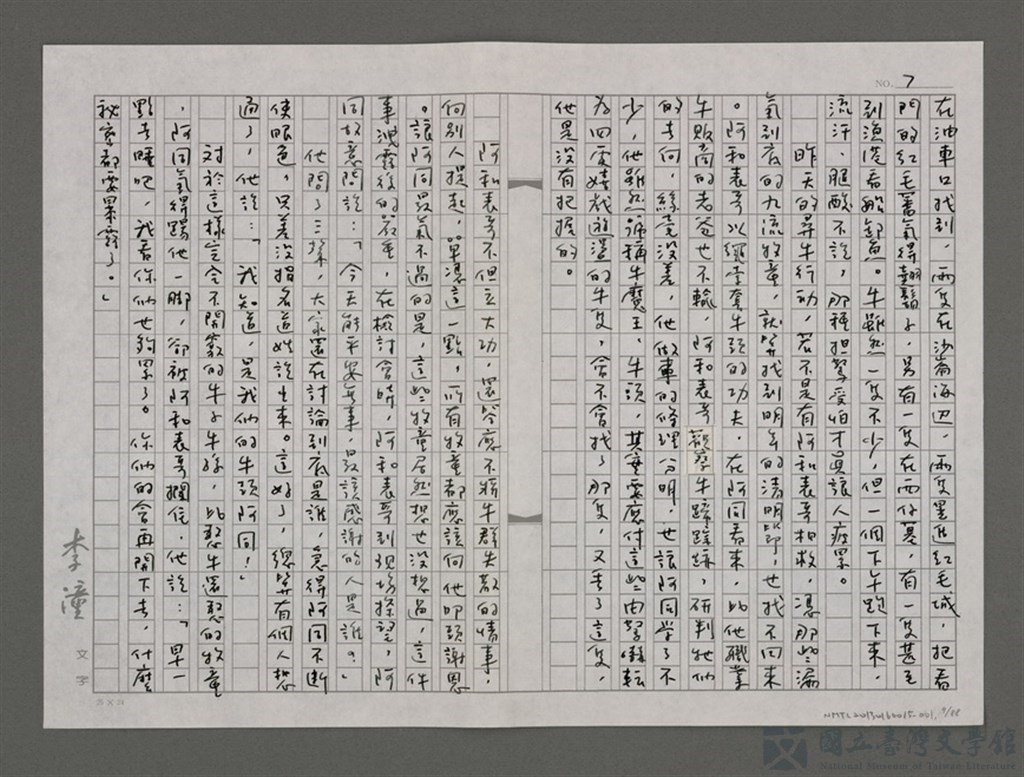 NO. 7
在油車口找到,兩隻在沙崙海邊,兩隻墨進紅毛城,把看
門的紅毛蕃氣得翹鬍子,另有一隻在西仔墓,有一隻甚至
到漁港看船卸魚。牛雖然一隻不少,但一個下午跑下來,
流汗、腿酸不說,那種担驚受怕才真讓人疲累。
昨天的尋牛行動,若不是有阿和表哥相救,憑那些漏
氣到底的九流牧童,就算找到明年的清明節,也找不回來
。阿和表哥以繩索套牛頭的功夫,在阿同看來,比他職業
牛販商的老爸也不輸,阿和表哥觀察牛蹄踩踪,研判牠們
的去向,絲毫沒差,他做事的條理分明,也讓阿同學了不
少,他雖然號稱牛魔王、牛頭,其實要應付這些由緊嚇轉
為四處嬉戲遊盪的牛隻,會不會找了那隻,又丟了這隻,
他是沒有把握的。
阿和表哥不但立大功,還答應不將牛群失散的情事,
向別人提起,單憑這一點,所有牧童都應該向他叩頭謝恩
。讓阿同最氣不過的是,這些牧童居然想也沒想過,這件
事洩露後的嚴重,在檢討會時,阿和表哥到現場探望,阿
同故意問說:「今天能平安無事,最該感謝的人是誰?」
他問了三探,大家還在討論到底是誰,急得阿同不斷
使眼色,只差沒指名道姓說出來。這好了,總算有個人想
通了,他說:「我知道,是我們的牛頭阿同!」
對於這樣完全不開竅的牛子牛孫,比憨牛還憨的牧童
,阿同氣得踢他一腳,卻被阿和表哥攔住,他說:「早一
點去睡吧,我看你們也夠累了。你們的會再開下去,什麼
秘密都要累露了。」
李潼
文字
25 X 24
NMTL20130160015-001, 7/22
國立臺灣文學館
National Museum of Taiwan Literature